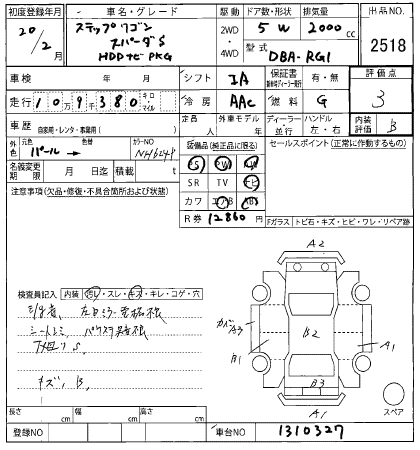 初度登録年月 車名・グレード 駆動 ドア数・形状 排気量 出品NO.
20/2月 ステップワゴン スパーダS HDDナビPKG 2WD・4WD 5 W 2000cc 2518
型式 DBA-RG1
車検 年 月 シフト IA 保証書 有・無 評価点
走行 109380 キロ・マイル 冷房 AAC 燃料 G 3
車歴 自家用・レンタ・事業用( ) 定員 人 外車モデル 年 ディーラー・並行 ハンドル 左・右 内装評価 B
外色 元色 パール→ 色替 カラーNO NH624P
装備品(純正品に限る) セールスポイント(正常に作動するもの)
PS PW AW
名義変更期限 月 日迄 積載 t
SR TV ナビ
注意事項(欠品・修復・不具合箇所および状態)
カワ エアB ABS
R券 12860円
Fガラス トビ石・キズ・ヒビ・ワレ・リペア跡
A2
検査員記入 内装 汚レ・スレ・キズ・キレ・コゲ・穴
カバA3
B2
B1
A1
下廻りS
キズ、B、
B3
A1
スペア
長さ cm 幅 cm 高さ cm
登録NO 車台NO 1310327